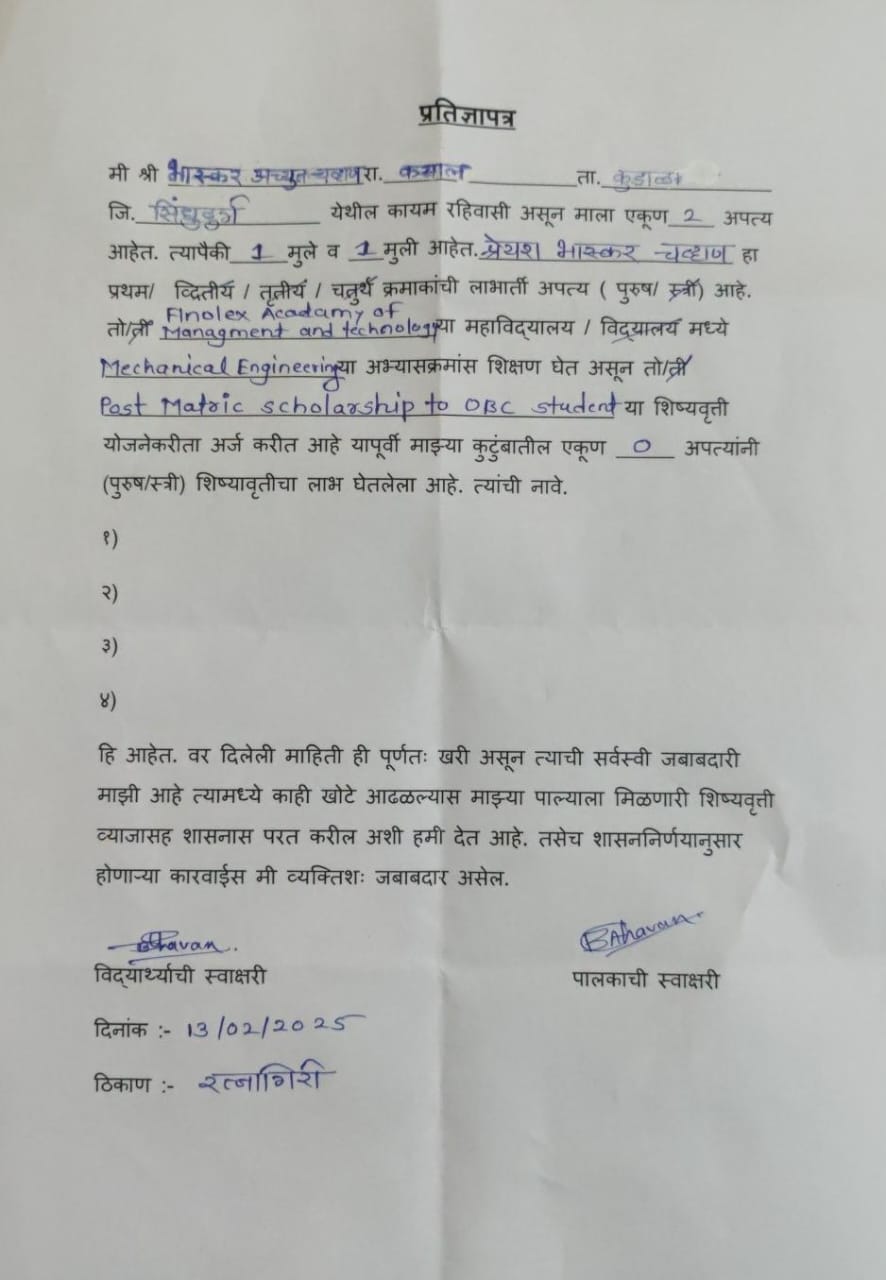 प्रतिज्ञापत्र
मी श्री भास्कर अच्युत चव्हाण रा. कसाल ता. कुडाळ
जि. सिंधुदुर्ग येथील कायम रहिवासी असून माला एकूण 2 अपत्य
आहेत. त्यापैकी 1 मुले व 1 मुली आहेत. प्रेयश भास्कर चव्हाण हा
प्रथम/ व्दितीय / तृतीय / चतुर्थ क्रमाकांची लाभार्ती अपत्य ( पुरुष/ स्त्री) आहे.
तो/ती Finolex Acadamy of
Managment and technology या महाविद्यालय / विद्यालय मध्ये
Mechanical Engineering या अभ्यासक्रमांस शिक्षण घेत असून तो/ती
Post Matric scholarship to OBC student या शिष्यवृत्ती
योजनेकरीता अर्ज करीत आहे यापूर्वी माझ्या कुटुंबातील एकूण 0 अपत्यांनी
(पुरुष/स्त्री) शिष्यावृतीचा लाभ घेतलेला आहे. त्यांची नावे.
१)
२)
३)
४)
हि आहेत. वर दिलेली माहिती ही पूर्णतः खरी असून त्याची सर्वस्वी जबाबदारी
माझी आहे त्यामध्ये काही खोटे आढळल्यास माझ्या पाल्याला मिळणारी शिष्यवृत्ती
व्याजासह शासनास परत करील अशी हमी देत आहे. तसेच शासननिर्णयानुसार
होणाऱ्या कारवाईस मी व्यक्तिशः जबाबदार असेल.
विद्यार्थ्याची स्वाक्षरी पालकाची स्वाक्षरी
दिनांक :- 13/02/2025
ठिकाण :- रत्नागिरी